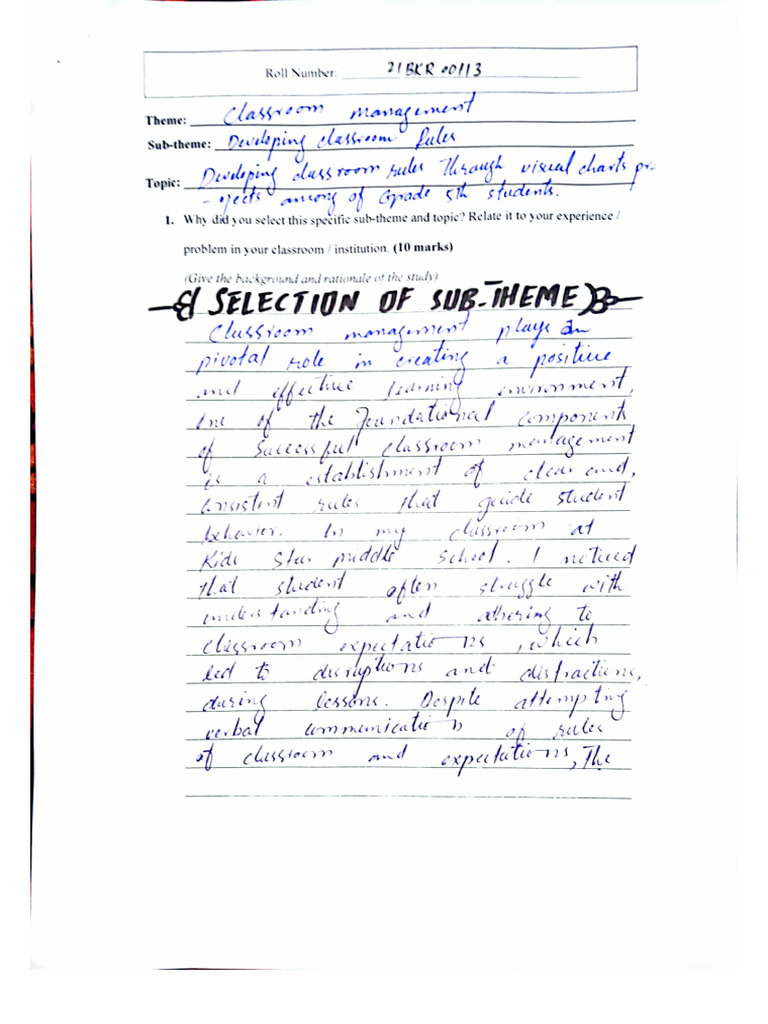 Roll Number: 21BKR00113
Theme: Classroom management
Sub-theme: Developing classroom Rules
Topic: Developing classroom rules Through visual charts pr-
-ojects among of Grade 5th students.
1. Why did you select this specific sub-theme and topic? Relate it to your experience /
problem in your classroom / institution. (10 marks)
(Give the background and rationale of the study)
SELECTION OF SUB-THEME
Classroom management plays an
pivotal role in creating a positive
and effective learning environment,
one of the Foundational components
of Successful classroom management
is a establishment of clear and,
consistent rules that guide student
behavior. In my classroom at
Kids Star middle School. I noticed
that student often struggle with
understanding and adhering to
classroom expectations, which
led to disruptions and distractions,
during lessons. Despite attempting
verbal communication of rules
of classroom and expectations, The